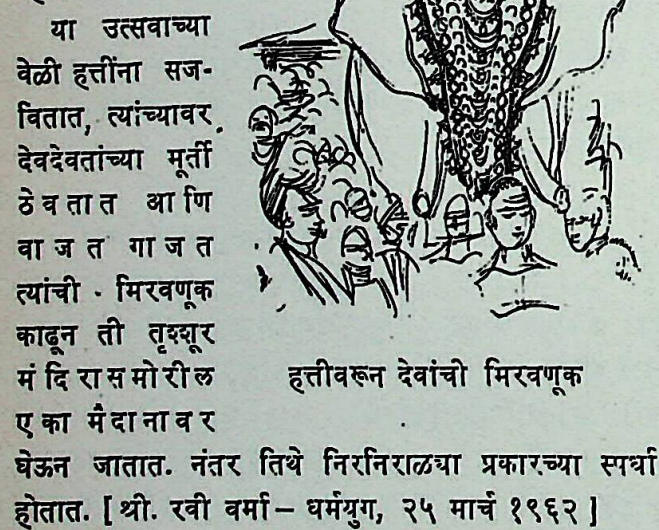 या उत्सवाच्या
वेळी हत्तींना सज-
वितात, त्यांच्यावर
देवदेवतांच्या मूर्ती
ठेवतात आणि
वाजत गाजत
त्यांची मिरवणूक
काढून ती तृश्शूर
मंदिरासमोरील
एका मैदानावर
हत्तीवरून देवांची मिरवणूक
घेऊन जातात. नंतर तिथे निरनिराळ्या प्रकारच्या स्पर्धा
होतात. [ श्री. रवी वर्मा – धर्मयुग, २५ मार्च १९६२ ]